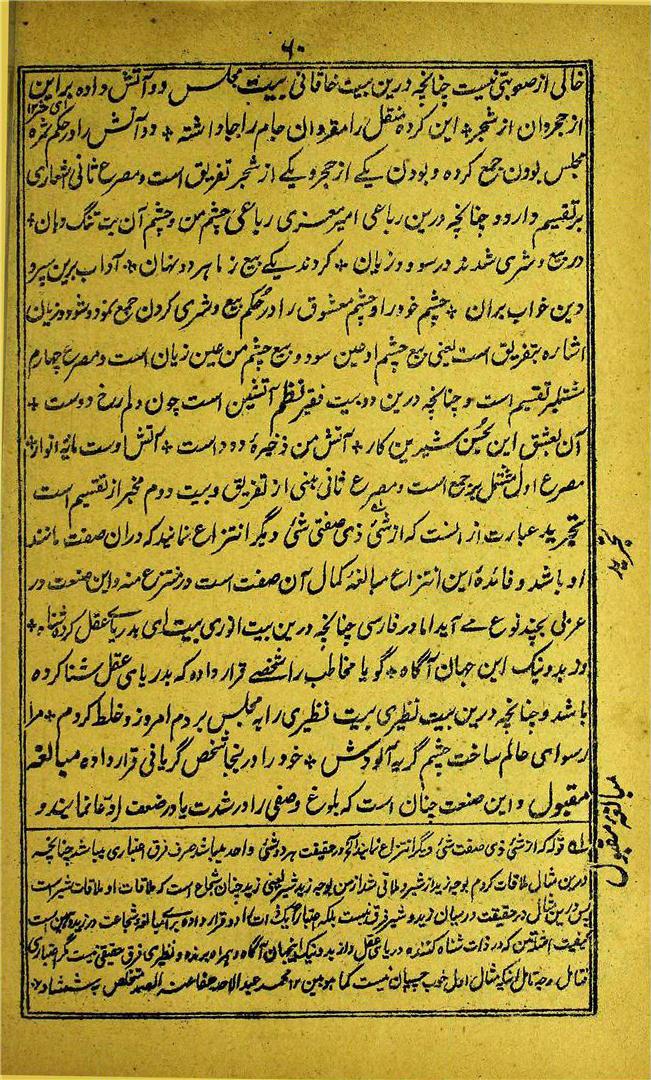 ۶۰
خالی از صعوبتی نیست چنانچه درین بیت خاقانی بیت مجلس دو آتش داده بر این
از حجر وان از شجر ٭ این کرده منقل را مقر وان جام را جا داشته ٭ دو آتش را در حکم
مجلس بودن جمع کرده و بودن یکے از حجر و یکے از شجر تفریق است و مصرع ثانی اشعاری
بر تقسیم دارد و چنانچه درین رباعی امیر معزی رباعی چشم من و چشم آن بت تنگ دهان ٭
در بیع و شری شدند در سود و زیان ٭ کردند یکے بیع ز ما هر دو نهان ٭ آداب برین سپرد
دین خواب بران ٭ چشم خود را و چشم معشوق را در حکم بیع و شری کردن جمع نمود و سود و زیان
اشاره بتفریق است یعنی بیع چشم او عین سود و بیع چشم من عین زیان است و مصرع چهارم
مشتملبر تقسیم است و چنانچه درین دو بیت فقیر نظم آتشین است چون دلم رخ دوست ٭
آن بعشق این بحسن شیرین کار ٭ آتش من ذخیرۀ دود است ٭ آتش اوست مایۀ انوار ٭
مصرع اول مشتمل بر جمع است و مصرع ثانی مبنی از تفریق و بیت دوم مخبر از تقسیم است
تجرید عبارت از انست که از شئ ذی صفتی شئ دیگر انتزاع نمایند که دران صفت مانند
او باشد و فائدۀ این انتزاع مبالغۀ کمال آن صفت است در منتزع منه و این صنعت در
عربی بچند نوع مے آید اما در فارسی چنانچه درین بیت انوری بیت ای بدریاے عقل کرده شناه ٭
وز بد و نیک این جهان آگاه ٭ گویا مخاطب را شخصے قرار داده که بدریای عقل شنا کرده
باشد و چنانچه درین بیت نظیری بیت نظیری را به مجلس بردم امروز و غلط کردم ٭ مرا
رسوای عالم ساخت چشم گریه آلودش ٭ خود را در ینجا شخص گریانی قرار داده مبالغه
مقبول و این صنعت چنان است که بلوغ وصفی را در شدت یا در ضعف ادعا نمایند و
تجرید
مبالغه مقبول
قوله که از شئ ذی صفت شئ دیگر انتزاع نمایند آنچه در حقیقت هر دو شئ واحد میباشد صرف فرق اعتباری میباشد چنانچه
درین مثال ملاقات کردم بوجه زید از شیر و ملاقی شد از من بوجه زید شیر یعنی زید چنان شجاع است که ملاقات او ملاقات شیر است
پس درین مثال در حقیقت درمیان زید و شیر فرق نیست بلکه باعتبار قرار داده برای مبالغه شجاعت در زید
که در ذات شناه کننده دریای عقل و از بد و نیک اینجهان آگاه و همراه برنده و نظیری فرق حقیقی نیست مگر اعتباری
فتامل وجه تامل آنکه مثال اول خوب چسپان نیست کما هو بین ۱۲ محمد عبد الاحد عفا عنه الصمد المتخلص به شمشاد